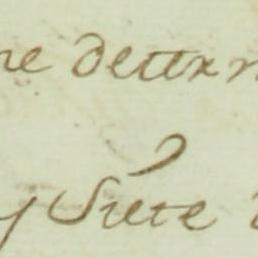 ne deter
y Siete